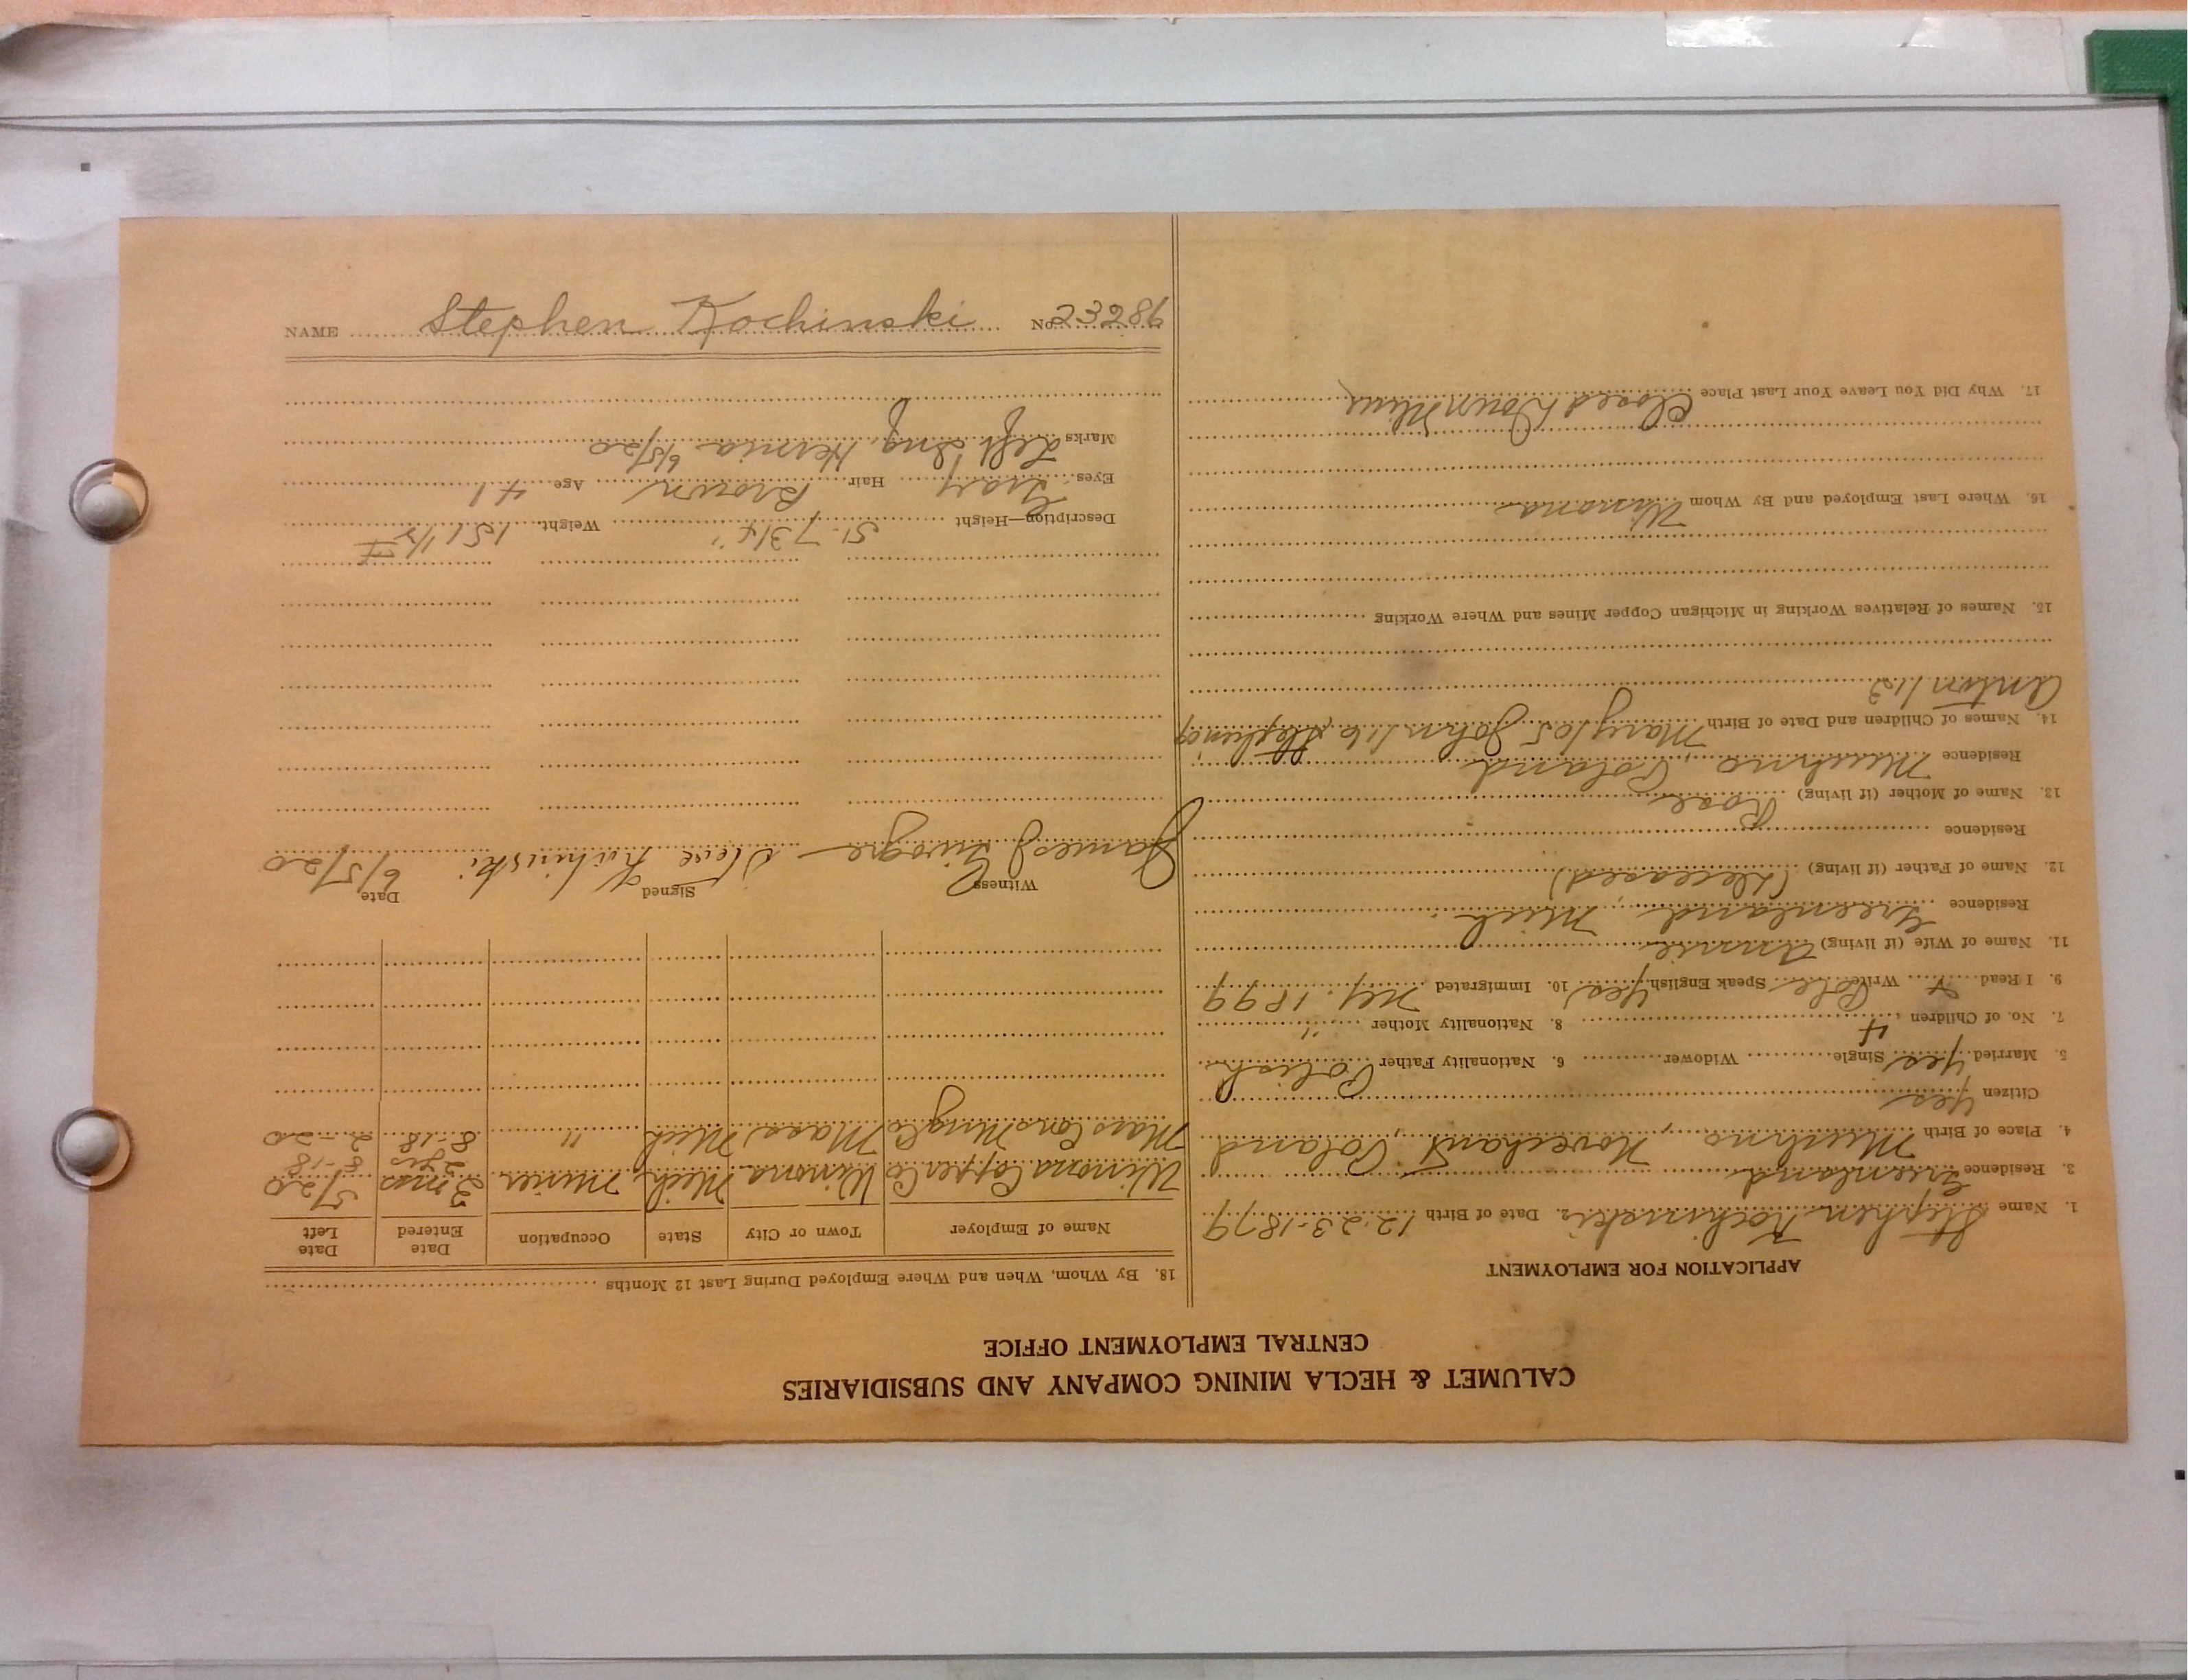 NAME Stephen Kochinski No. 23286
CALUMET & HECLA MINING COMPANY AND SUBSIDIARIES
CENTRAL EMPLOYMENT OFFICE
APPLICATION FOR EMPLOYMENT
1. Name Stephen Kochinski 2. Date of Birth 12-23-1879
3. Residence Greenland
4. Place of Birth Poland
Citizen Yes
5. Married Yes Single Widower 6. Nationality Father Polish
7. No. of Children 4 8. Nationality Mother "
9. I Read Write Pole Speak English Yes 10. Immigrated N.Y. 1899
11. Name of Wife (if living) Annie
Residence Greenland, Mich.
12. Name of Father (if living) (Deceased)
Residence
13. Name of Mother (if living) Rose
Residence Poland
14. Names of Children and Date of Birth Mary 10 5 John 1 Stephen 9
Anton 1
15. Names of Relatives Working in Michigan Copper Mines and Where Working
16. Where Last Employed and By Whom Winona
17. Why Did You Leave Your Last Place Closed Down Mine
18. By Whom, When and Where Employed During Last 12 Months
Name of Employer Town or City State Occupation Date Entered Date Left
Winona Copper Co Winona Mich. Miner 3 mos 5/20
2 yrs 8-18
Mass Cons Mng Co Mass Mich " 8-18 2-20
Witness Signed Date
James Steve 6/5/20
Description—Height 5'-7 3/4" Weight 151 1/2 #
Eyes Gray Hair Brown Age 41
Marks Left Ing. Hernia 6/5/20